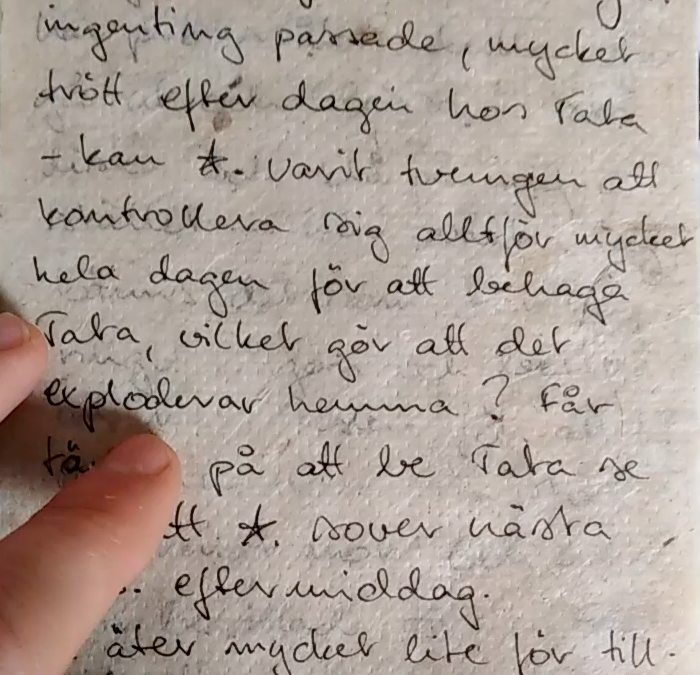 ingenting passade, mycket
trött efter dagen hos Tata
- kan ☆. varit tvungen att
kontrollera sig alltför mycket
hela dagen för att behaga
Tata, vilket gör att det
exploderar hemma? Får
på att be Tata se
☆. sover nästa
eftermiddag.
äter mycket lite för till-